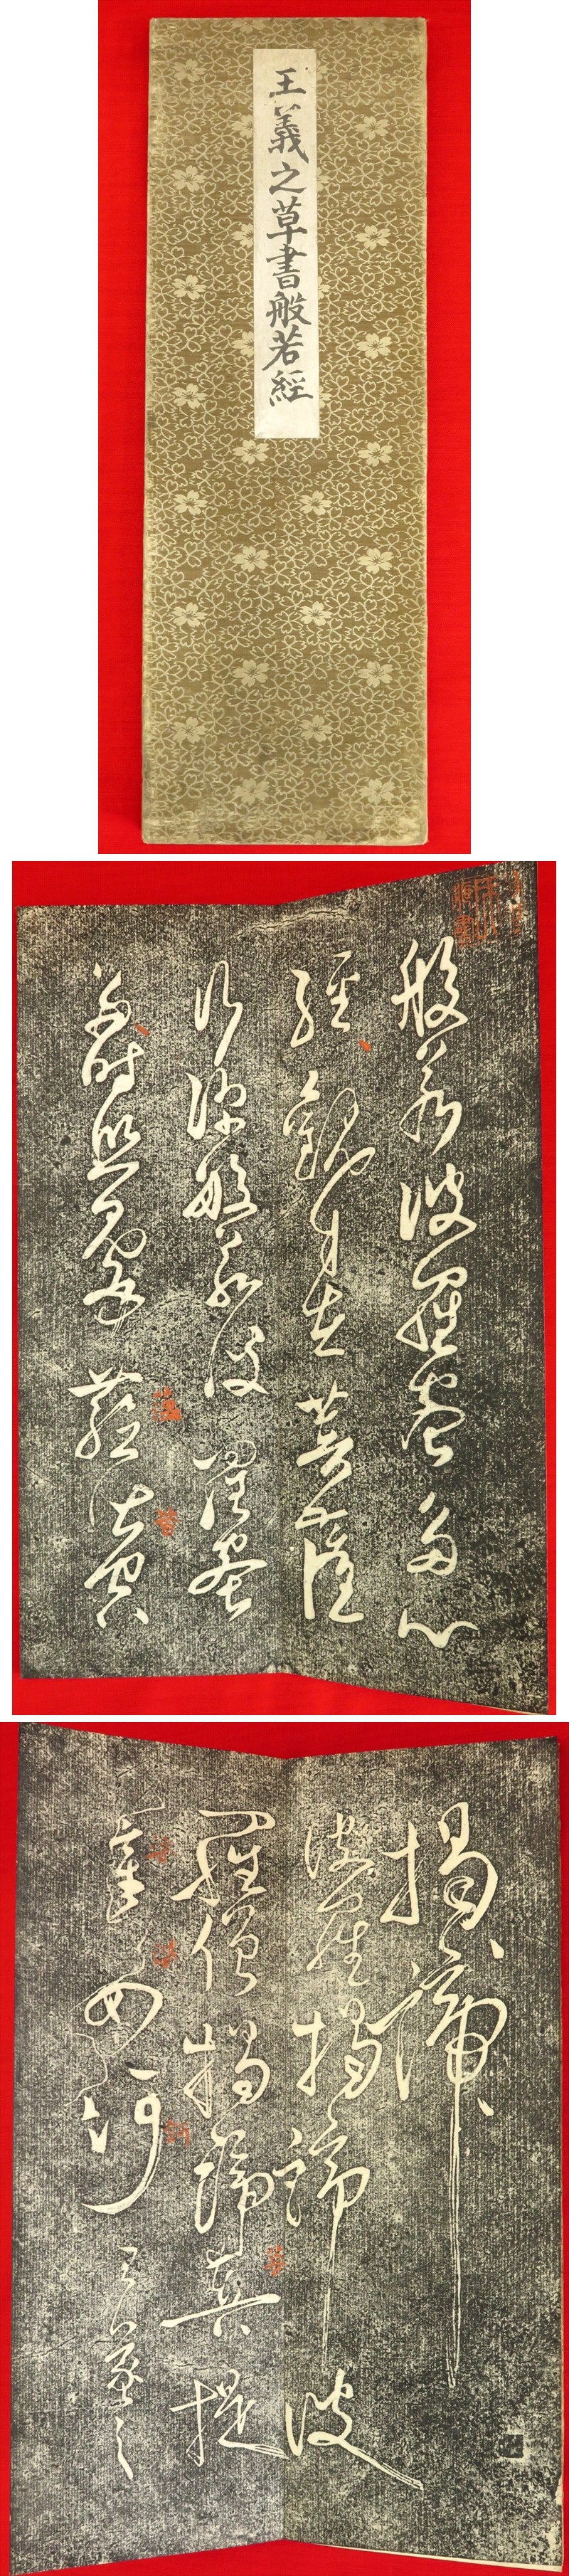 王羲之草書般若經
般若波羅蜜多心
經觀自在菩薩
行深般若波羅蜜
多時照見五蘊皆空
揭諦
波羅揭諦波
羅僧揭諦菩提
薩婆訶王羲之